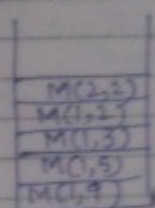 M(2,2)
M(1,2)
M(1,3)
M(1,5)
M(1,9)